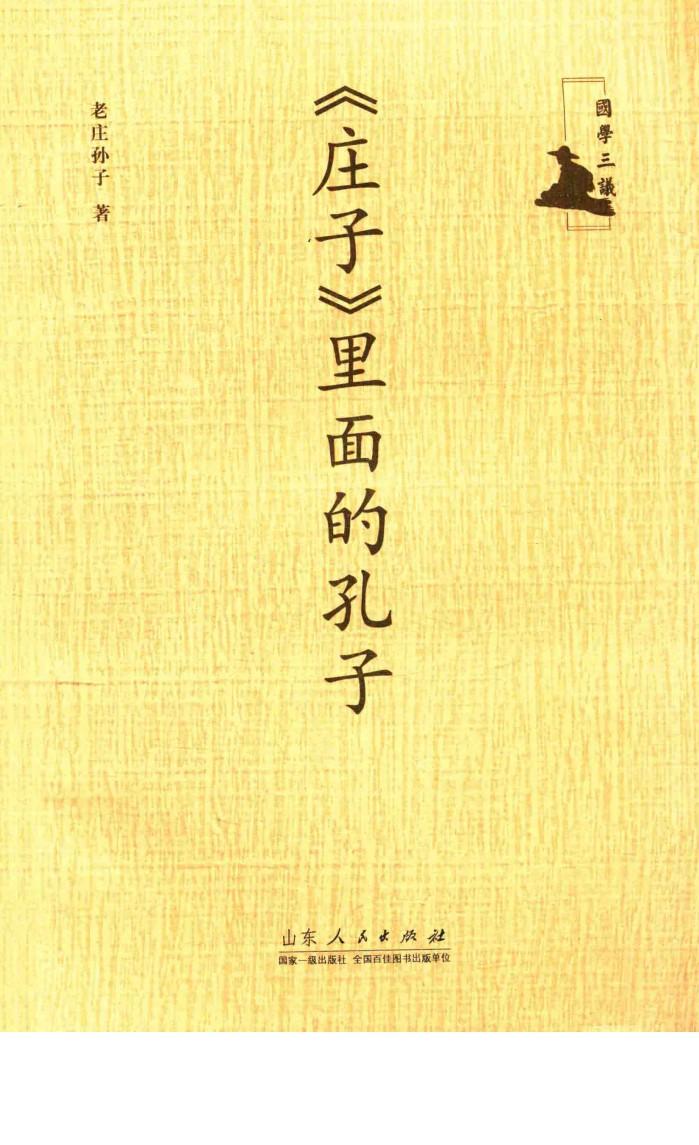 國學三議
《庄子》里面的孔子
老庄孙子 著
山东人民出版社
国家一级出版社 全国百佳图书出版单位